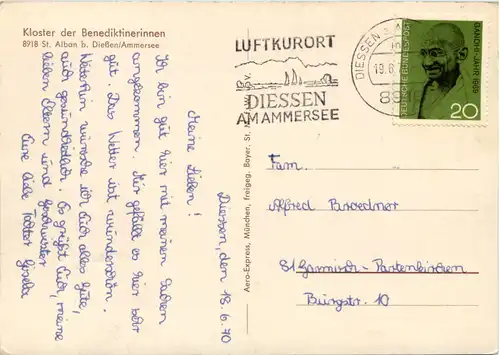 Kloster der Benediktinerinnen
8918 St. Alban b. Dießen/Ammersee
LUFTKURORT
DIESSEN
AM AMMERSEE
DIESSEN
GANDHI-JAHR 1969
DEUTSCHE BUNDESPOST
20
Diessen, den 18.6.70
Meine Lieben!
Ich bin gut hier mit meinen Sachen
angekommen. Mir gefällt es hier sehr
gut. Das Wetter ist wunderschön.
Weiterhin wünsche ich Euch alles Gute,
auch gesundheitlich. Es grüßt Euch, meine
lieben Eltern und Geschwister
Eure liebe Tochter Gisela
Aero-Express, München, freigeg. Bayer. St. M. f. W.
Fam.
Alfred Broedner
81 Garmisch-Partenkirchen
Burgstr. 10